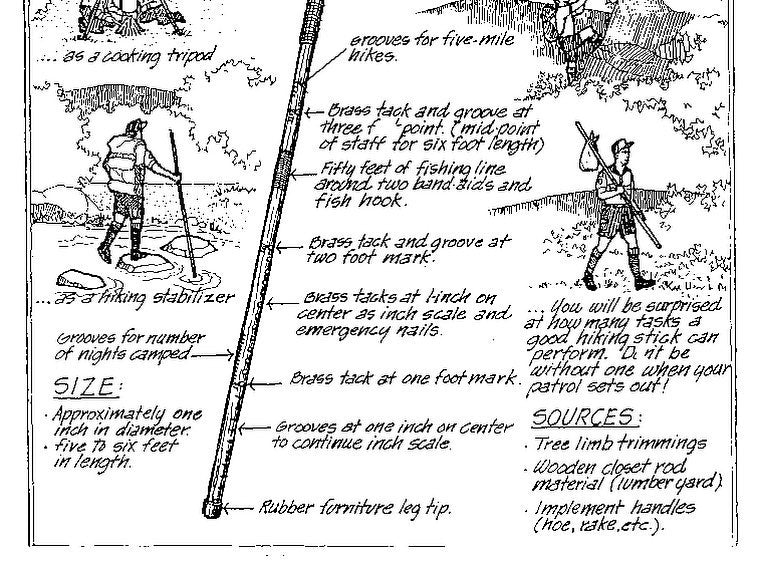 ... as a cooking tripod
Grooves for five-mile
hikes.
Brass tack and groove at
three f point. (mid point
of staff for six foot length)
Fifty feet of fishing line
around two band-aids and
fish hook.
Brass tack and groove at
two foot mark.
... as a hiking stabilizer
Brass tacks at 1-inch on
center as inch scale and
emergency nails.
Grooves for number
of nights camped
Brass tack at one foot mark.
SIZE:
· Approximately one
inch in diameter.
· five to six feet
in length.
Grooves at one inch on center
to continue inch scale.
Rubber furniture leg tip.
... You will be surprised
at how many tasks a
good hiking stick can
perform. D nt be
without one when your
patrol sets out!
SOURCES:
· Tree limb trimmings
· Wooden closet rod
material (lumber yard)
· Implement handles
(hoe, rake, etc.).